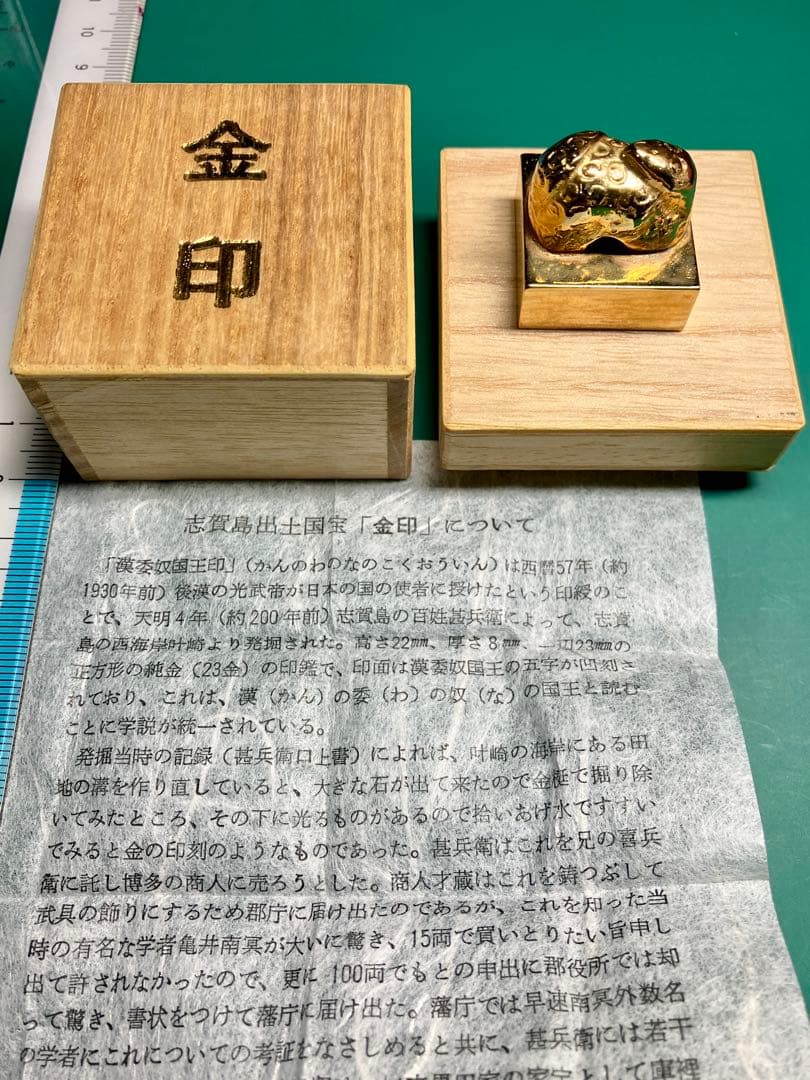 金
印
10
9
1
志賀島出土国宝「金印」について
「漢委奴国王印」(かんのわのなのこくおういん)は西暦57年(約
1930年前)後漢の光武帝が日本の国の使者に授けたという印綬のこ
とで、天明4年(約200年前)志賀島の百姓甚兵衛によって、志賀
島の西海岸叶崎より発掘された。高さ22㎜、厚さ8㎜、一辺23㎜の
正方形の純金(23金)の印鑑で、印面は漢委奴国王の五字が凹刻さ
れており、これは、漢(かん)の委(わ)の奴(な)の国王と読む
ことに学説が統一されている。
発掘当時の記録(甚兵衛口上書)によれば、叶崎の海岸にある田
地の溝を作り直していると、大きな石が出て来たので金梃で掘り除
いてみたところ、その下に光るものがあるので拾いあげ水ですすい
でみると金の印刻のようなものであった。甚兵衛はこれを兄の喜兵
衛に託し博多の商人に売ろうとした。商人才蔵はこれを鋳つぶして
武具の飾りにするため郡庁に届け出たのであるが、これを知った当
時の有名な学者亀井南冥が大いに驚き、15両で買いとりたい旨申し
出て許されなかったので、更に100両でもとの申出に郡役所では却
って驚き、書状をつけて藩庁に届け出た。藩庁では早速南冥外数名
の学者にこれについての考証をなさしめると共に、甚兵衛には若干